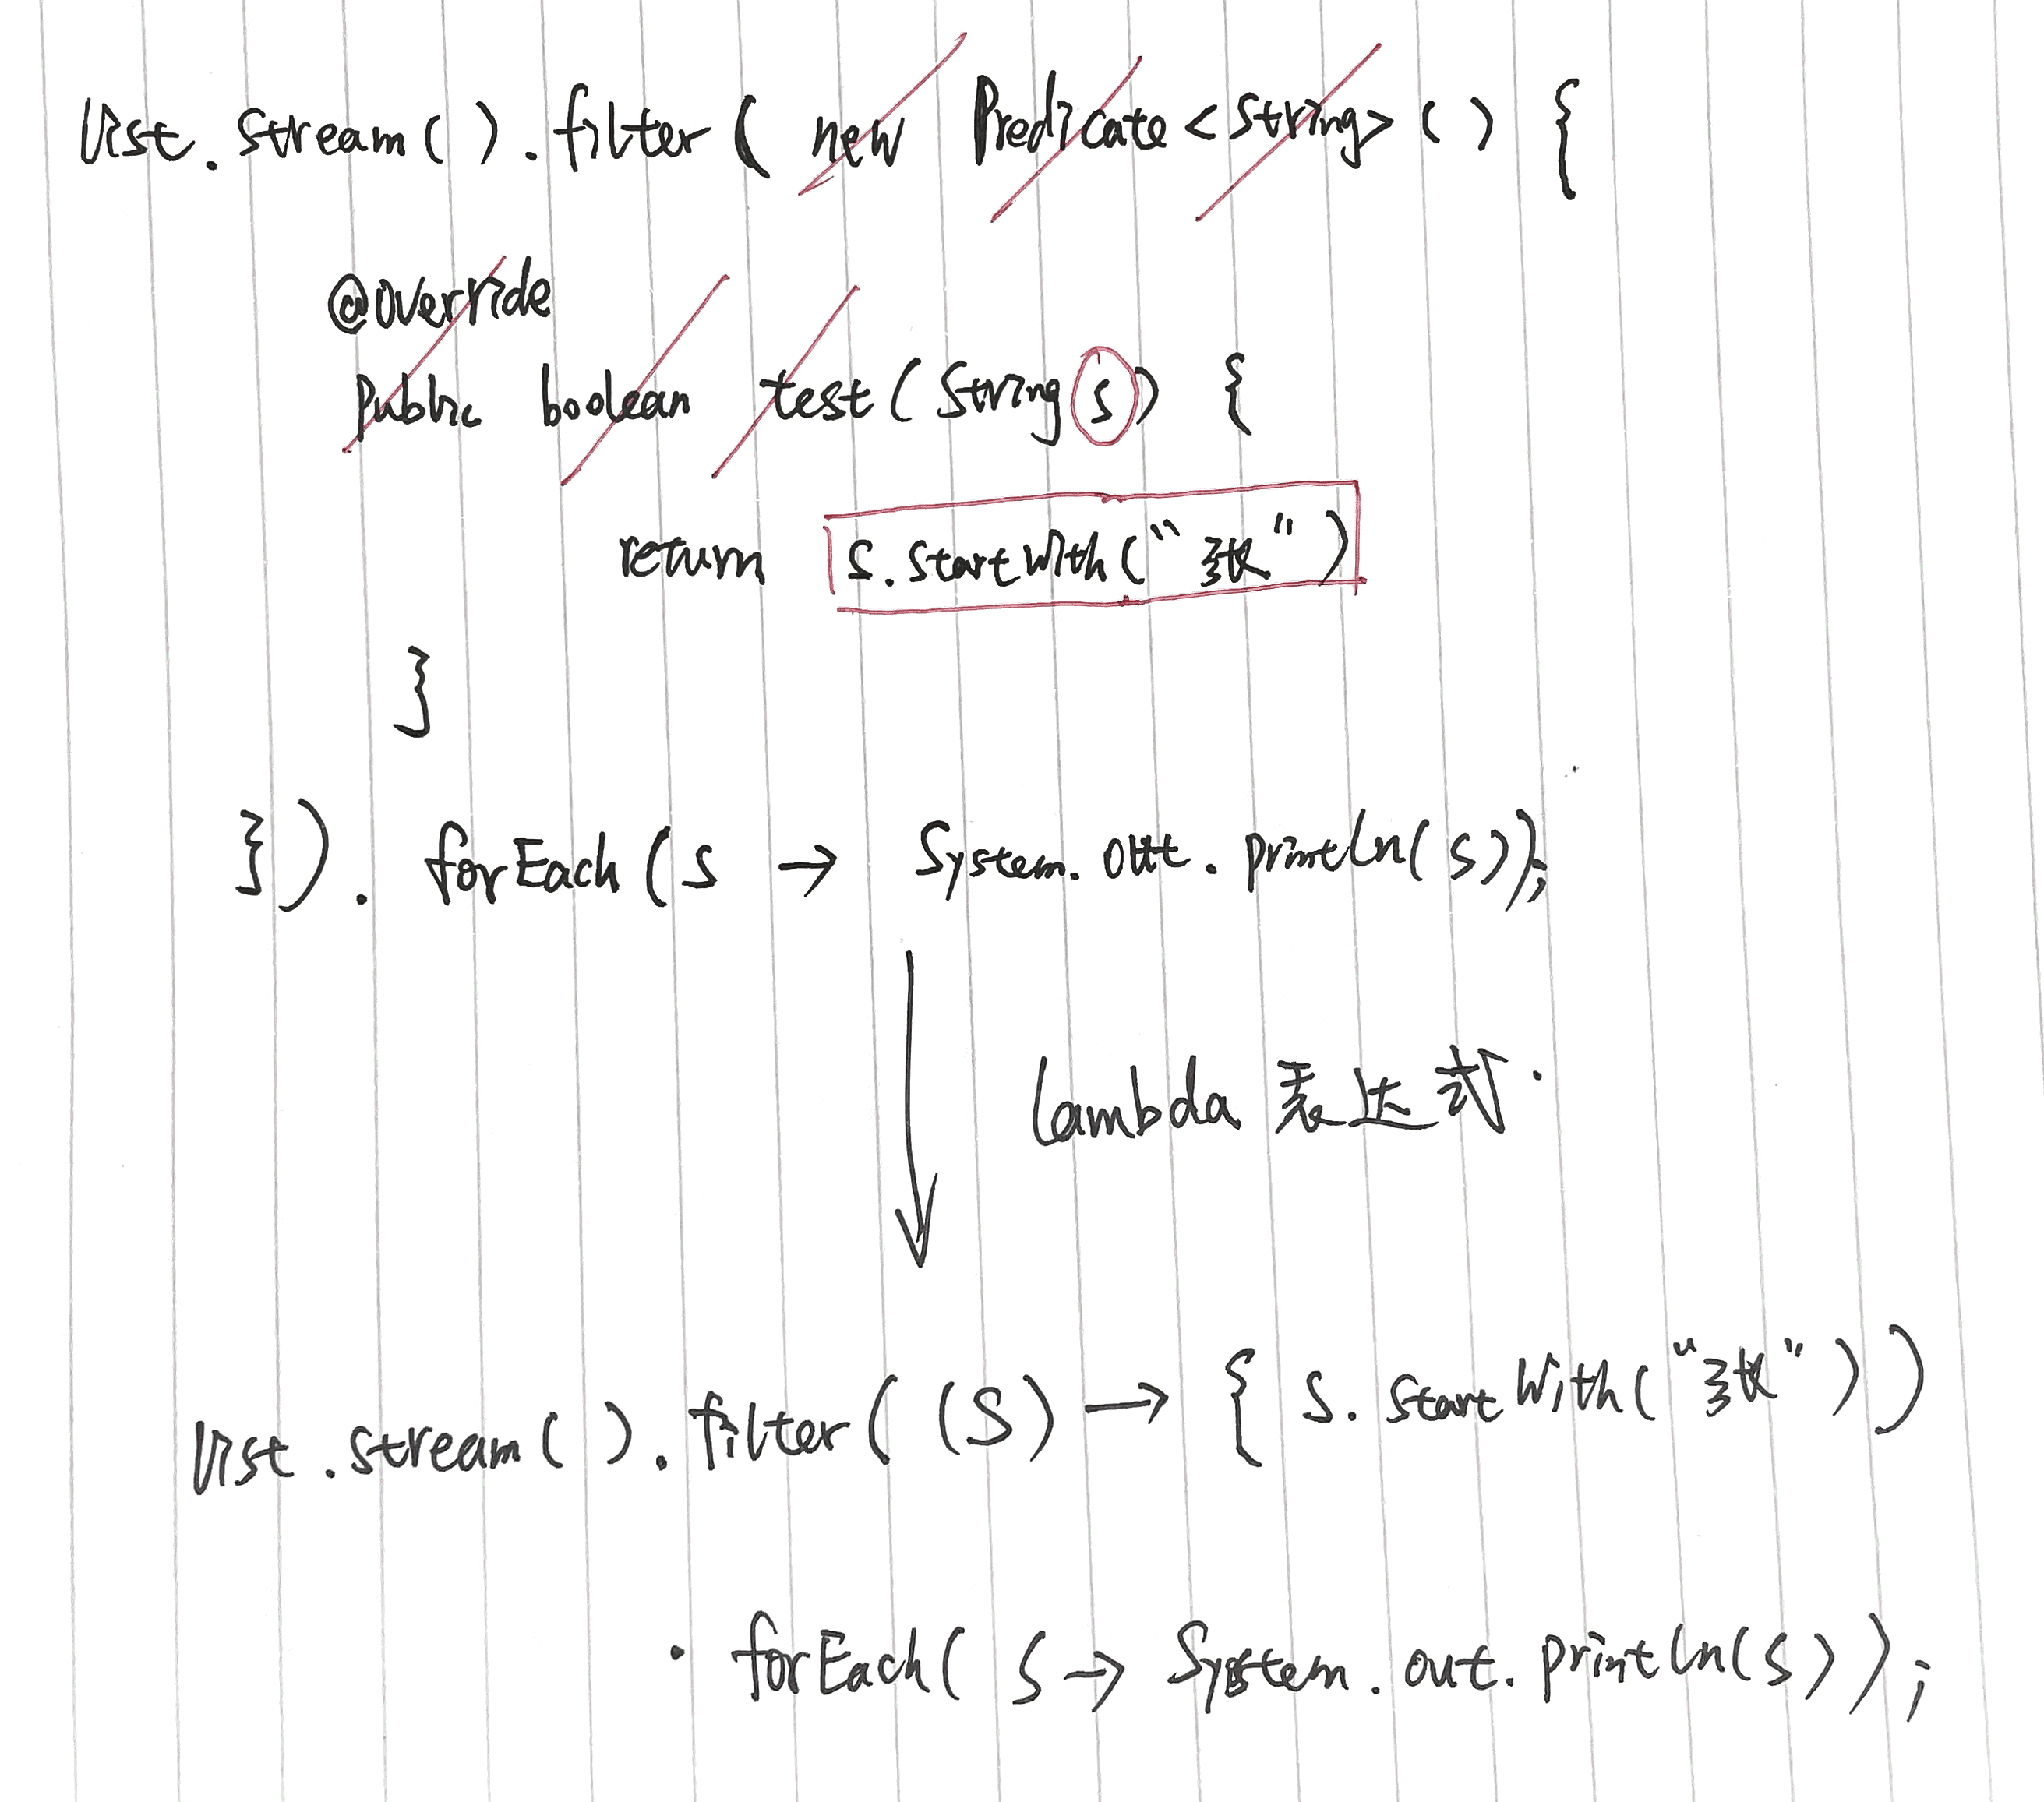 list.stream().filter( new Predicate<String>() {
@Override
public boolean test(String s) {
return s.startWith("张")
}
}).forEach(s → System.out.println(s));
lambda 表达式.
list.stream().filter( (s) → { s.startWith("张"))
.forEach( s → System.out.println(s));